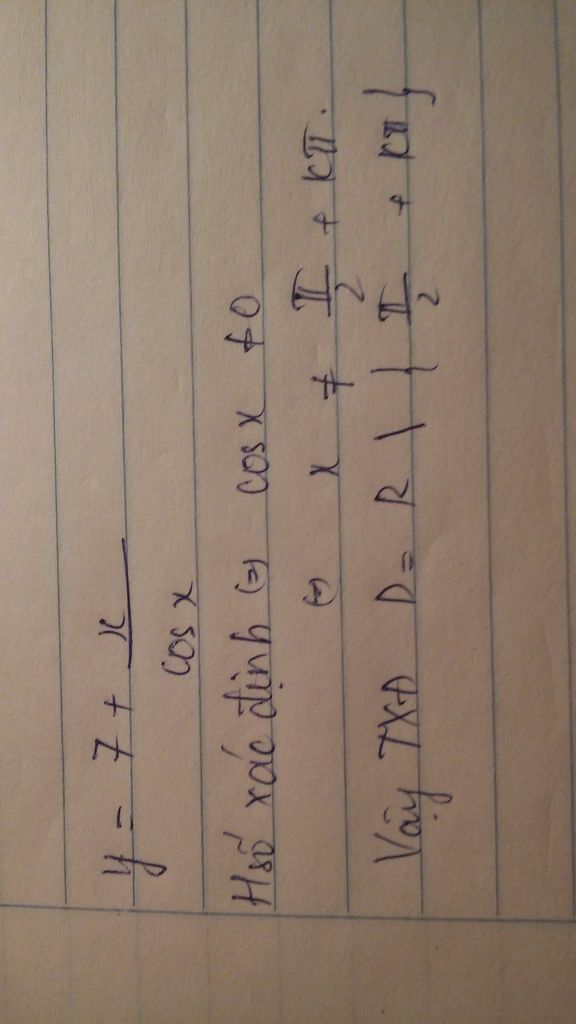 y = 7 + x
cos x
H số xác định (=) cos x ≠ 0
(=) x ≠ π/2 + kπ.
Vậy TXĐ D = R \ { π/2 + kπ }